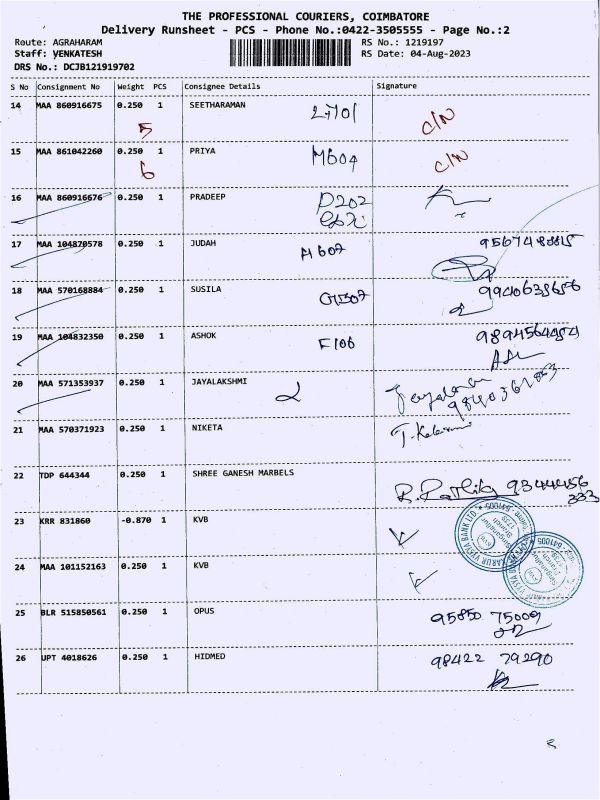 THE PROFESSIONAL COURIERS, COIMBATORE
Delivery Runsheet - PCS - Phone No.:0422-3505555 - Page No.:2
Route: AGRAHARAM RS No.: 1219197
Staff: VENKATESH RS Date: 04-Aug-2023
DRS No.: DCJB121919702
S No Consignment No Weight PCS Consignee Details Signature
14 MAA 860916675 0.250 1 SEETHARAMAN C/N
5
15 MAA 861042260 0.250 1 PRIYA M604 C/N
6
16 MAA 860916676 0.250 1 PRADEEP D202
17 MAA 104829578 0.250 1 JUDAH A602
18 MAA 570168884 0.250 1 SUSILA
19 MAA 104832350 0.250 1 ASHOK F106
20 MAA 571353937 0.250 1 JAYALAKSHMI
21 MAA 570371923 0.250 1 NIKETA
22 TDP 644344 0.250 1 SHREE GANESH MARBELS
333
23 KRR 831860 -0.870 1 KVB
24 MAA 101152163 0.250 1 KVB
25 BLR 515850561 0.250 1 OPUS 95850 75009
26 UPT 4018626 0.250 1 HIDMED 98422 79290